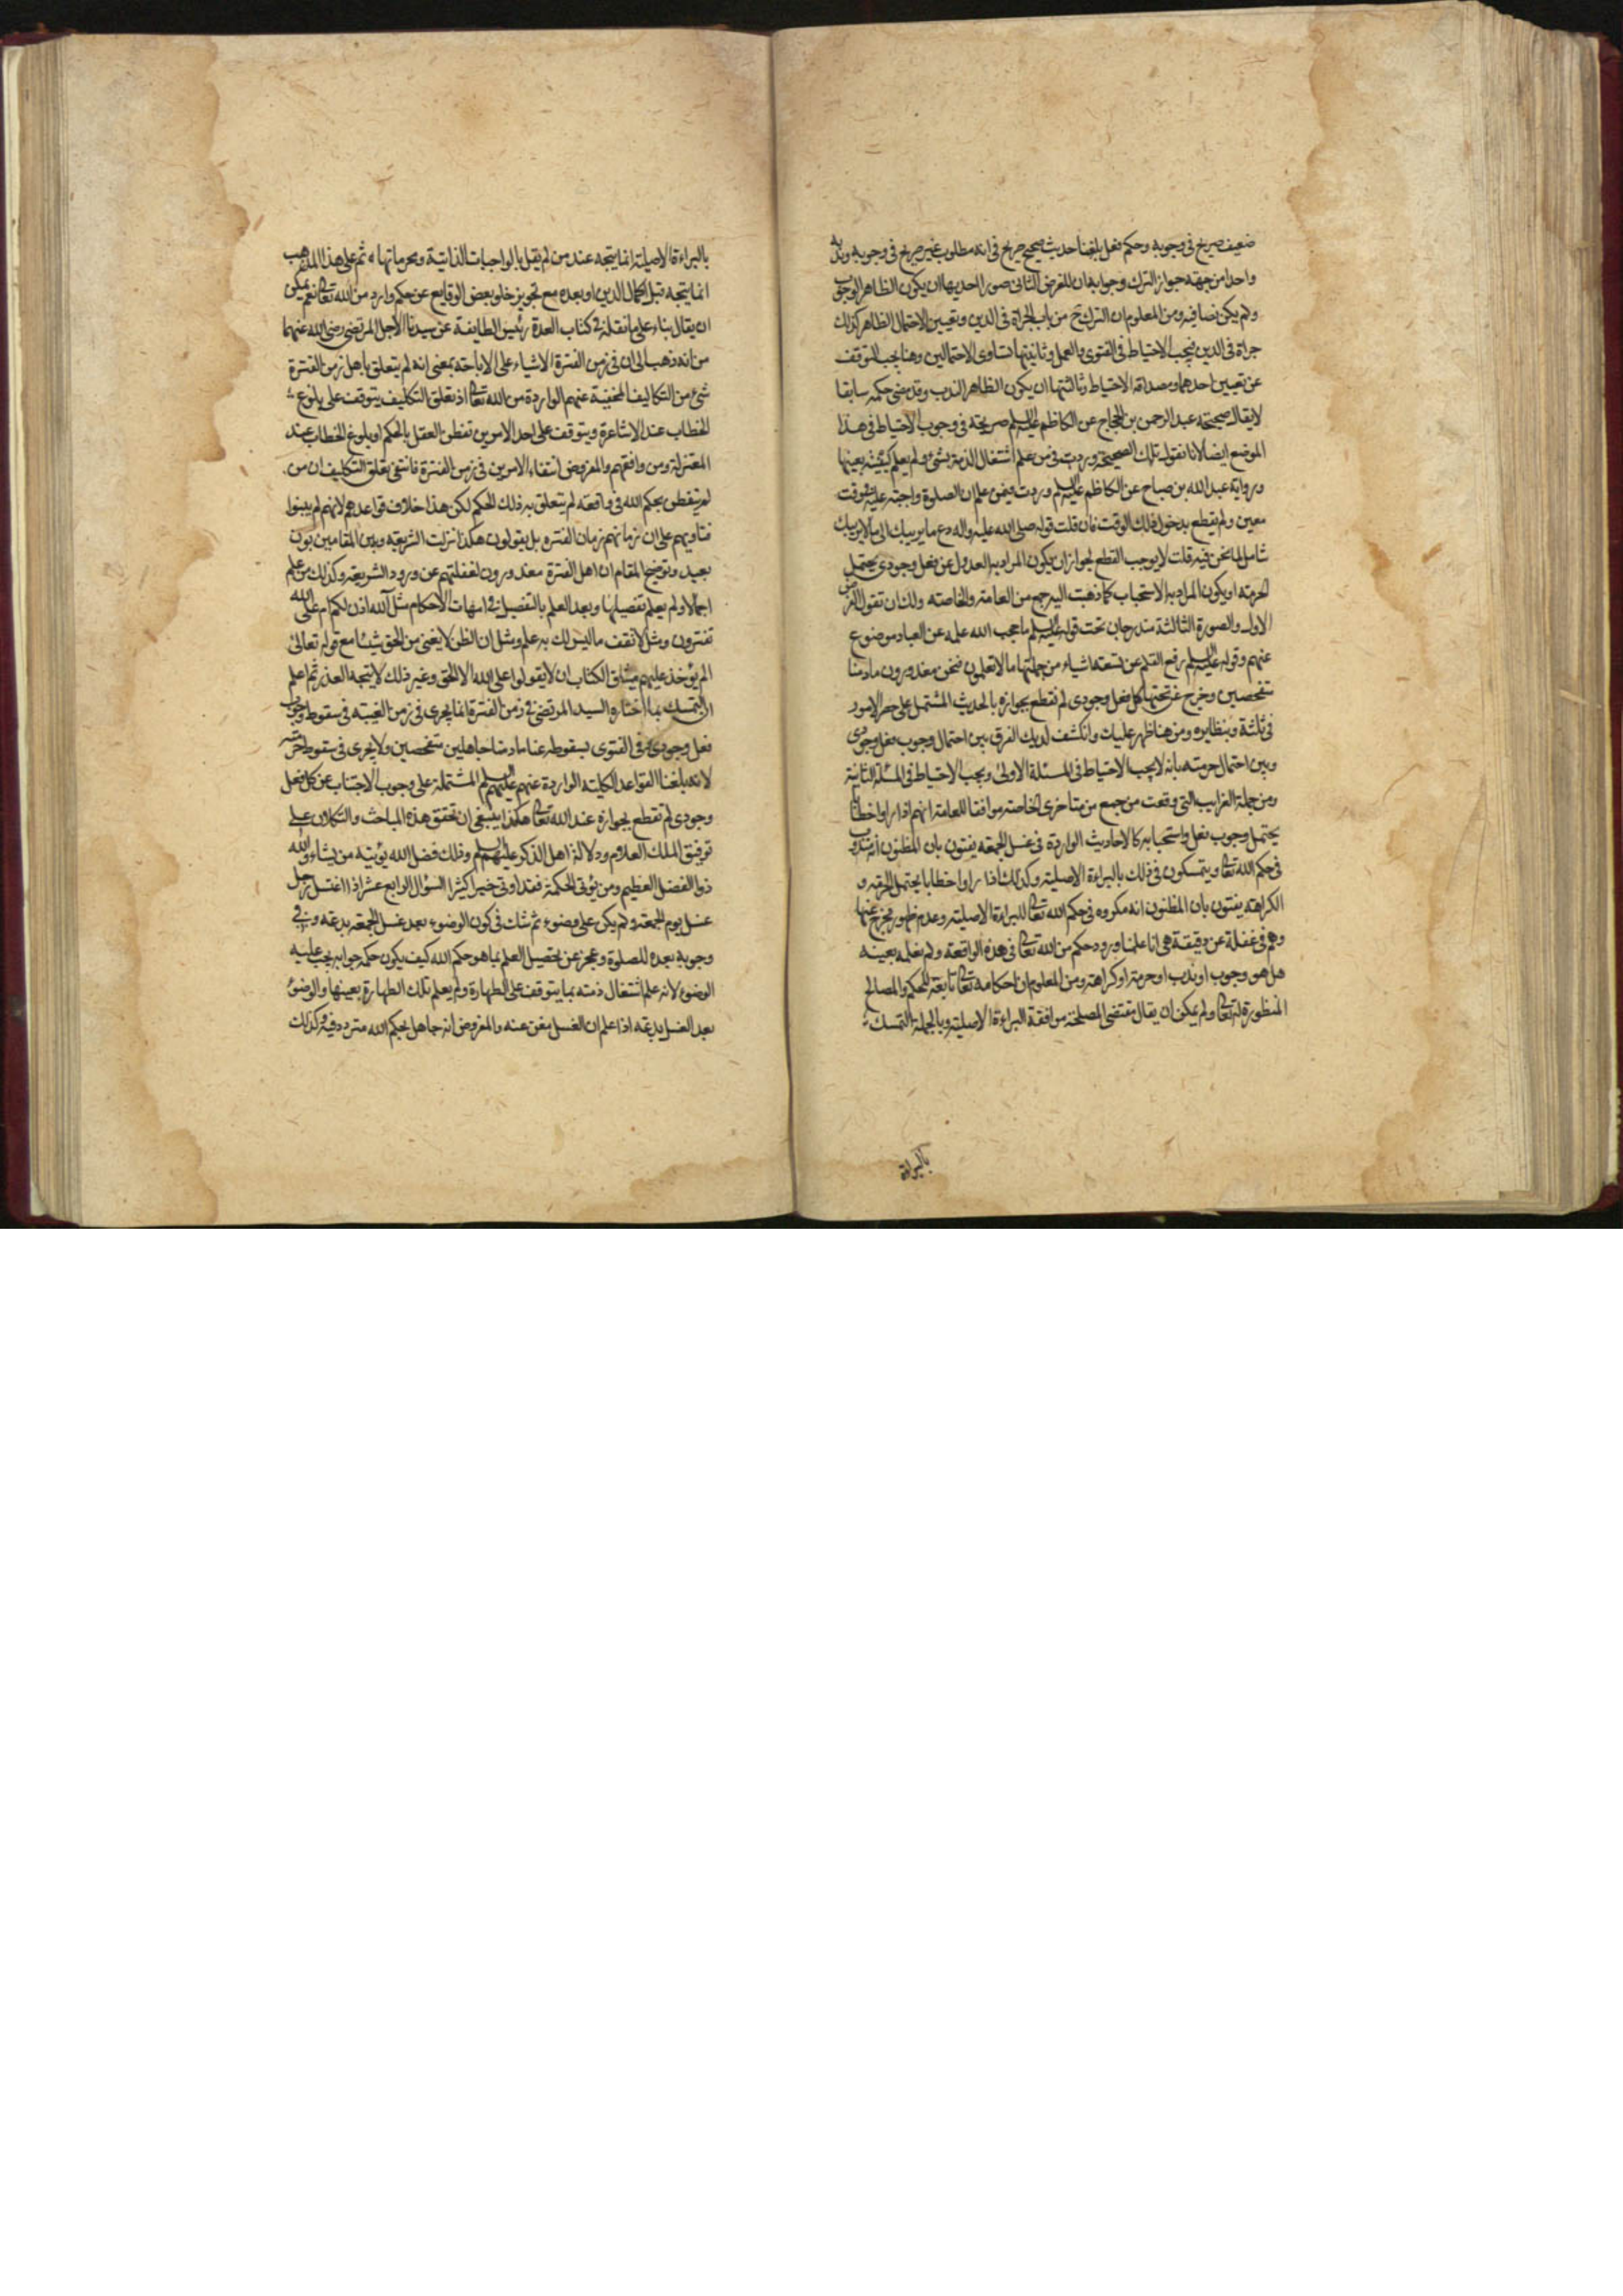 ضعيف صريح في وجوبه وحكم فعل بلغنا حديث صحيح صريح في انه مطلوب غير صريح في وجوبه وندبه
واحدا من جهة جواز الترك وجوابه ان للفرض الثاني صورا احديها ان يكون الظاهر الوجوب
ولم يكن نصا فيه ومن المعلوم ان الترك ح من باب الجراة في الدين وتعيين الاحتمال الظاهر كذلك
جراة في الدين فيجب الاحتياط في الفتوى والعمل وثانيتها تساوى الاحتمالين وهنا يجب التوقف
عن تعيين احدهما ومصداقه الاحتياط وثالثتها ان يكون الظاهر الندب وقد مضى حكمه سابقا
لا يقال صحيحة عبد الرحمن بن الحجاج عن الكاظم عليه السلم صريحة في وجوب الاحتياط في هذا
الموضع ايضا لانا نقول تلك الصحيحة وردت في من علم اشتغال الذمة بشئ ولم يعلم كميته بعينها
ورواية عبد الله بن صباح عن الكاظم عليه السلم وردت فيمن علم ان الصلوة واجبة عليه في وقت
معين ولم يقطع بدخول ذلك الوقت فان قلت قوله صلى الله عليه واله دع ما يريبك الى ما لا يريبك
شامل لما نحن فيه قلت لا يوجب القطع لجواز ان يكون المراد به العدول عن فعل وجودى يحتمل
الحرمة او يكون المراد به الاستحباب كما ذهبت اليه جمع من العامة والخاصة ولك ان تقول الفرض
الاول والصورة الثالثة مندرجان تحت قوله عليه السلم ما حجب الله علمه عن العباد موضوع
عنهم وقوله عليه السلم رفع القلم عن تسعة اشياء من جملتها ما لا تعلمون فنحن معذورون ما دمنا
متفحصين وخرج عن تحتها كل فعل وجودى لم نقطع بجوازه بالحديث المشتمل على حصر الامور
في ثلثة وبنظايره ومن هنا ظهر عليك وانكشف لديك الفرق بين احتمال وجوب فعل وجودى
وبين احتمال حرمته بانه لا يجب الاحتياط في المسئلة الاولى ويجب الاحتياط في المسئلة الثانية
ومن جملة الغرايب التي وقعت من جمع من متاخرى الخاصة موافقا للعامة انهم اذا راوا خطابا
يحتمل وجوب فعل واستحبابه كالاحاديث الواردة في غسل الجمعة يفتون بان المظنون انه مندوب
في حكم الله تعالى ويتمسكون في ذلك بالبراءة الاصلية وكذلك اذا راوا خطابا يحتمل الحرمة و
الكراهة يفتون بان المظنون انه مكروه في حكم الله تعالى للبراءة الاصلية وعدم ظهور مخرج عنها
وهم في غفلة عن دقيقة هي انا علمنا ورود حكم من الله تعالى في هذه الواقعة ولم نعلمه بعينه
هل هو وجوب او ندب او حرمة او كراهة ومن المعلوم ان احكامه تعالى تابعة للحكم والمصالح
المنظورة له تعالى ولم يمكن ان يقال مقتضى المصلحة موافقة البراءة الاصلية وبالجملة التمسك
بالبراءة
بالبراءة الاصلية انما يتجه عند من لم يقل بالواجبات الذاتية ومحرماتها ثم على هذا المذهب
انما يتجه قبل اكمال الدين او بعده مع تجويز خلو بعض الوقايع عن حكم وارد من الله تعالى نعم يمكن
ان يقال بناء على ما نقله في كتاب العدة رئيس الطايفة عن سيدنا الاجل المرتضى رضى الله عنهما
من انه ذهب الى ان في زمن الفترة الاشياء على الاباحة بمعنى انه لم يتعلق باهل زمن الفترة
شئ من التكاليف المخفية عنهم الواردة من الله تعالى اذ تعلق التكليف يتوقف على بلوغ
الخطاب عند الاشاعرة ويتوقف على احد الامرين تفطن العقل بالحكم او بلوغ الخطاب عند
المعتزلة ومن وافقهم والمفروض انتفاء الامرين في زمن الفترة فانتفى تعلق التكليف ان من
لم يتفطن بحكم الله في واقعة لم يتعلق به ذلك الحكم لكن هذا خلاف قواعدهم لانهم لم يبنوا
فتاويهم على ان زمانهم زمان الفتره بل يقولون هكذا نزلت الشريعة وبين المقامين بون
بعيد وتوضيح المقام ان اهل الفترة معذورون لغفلتهم عن ورود الشريعة وكذلك من علم
اجمالا ولم يعلم تفصيلها وبعد العلم بالتفصيل في امهات الاحكام مثل آلله اذن لكم ام على الله
تفترون ومثل لا تقف ما ليس لك به علم ومثل ان الظن لا يغنى من الحق شيئا مع قوله تعالى
الم يؤخذ عليهم ميثاق الكتاب ان لا يقولوا على الله الا الحق وغير ذلك لا يتجه العذر ثم اعلم
ان التمسك بما اختاره السيد المرتضى في زمن الفترة انما يجرى في زمن الغيبة في سقوط وجوب
فعل وجودى في الفتوى بسقوطه عنا ما دمنا جاهلين متفحصين ولا يجرى في سقوط حرمته
لانه بلغنا القواعد الكلية الواردة عنهم عليهم السلم المشتملة على وجوب الاجتناب عن كل فعل
وجودى لم نقطع بجوازه عند الله تعالى هكذا ينبغى ان تحقق هذه المباحث والتكلان على
توفيق الملك العلام ودلالة اهل الذكر عليهم السلم وذلك فضل الله يؤتيه من يشاء والله
ذوا الفضل العظيم ومن يؤتى الحكمة فقد اوتى خيرا كثيرا السؤال الرابع عشر اذا اغتسل رجل
غسل يوم الجمعة ولم يكن على وضوء ثم شك في كون الوضوء بعد غسل الجمعة بدعة وفي
وجوبه بعده للصلوة وعجز عن تحصيل العلم بما هو حكم الله كيف يكون حكمه جوابه يجب عليه
الوضوء لانه علم اشتغال ذمته بما يتوقف على الطهارة ولم يعلم تلك الطهارة بعينها والوضوء
بعد الغسل بدعة اذا علم ان الغسل مغن عنه والمفروض انه جاهل بحكم الله متردد فيه وكذلك